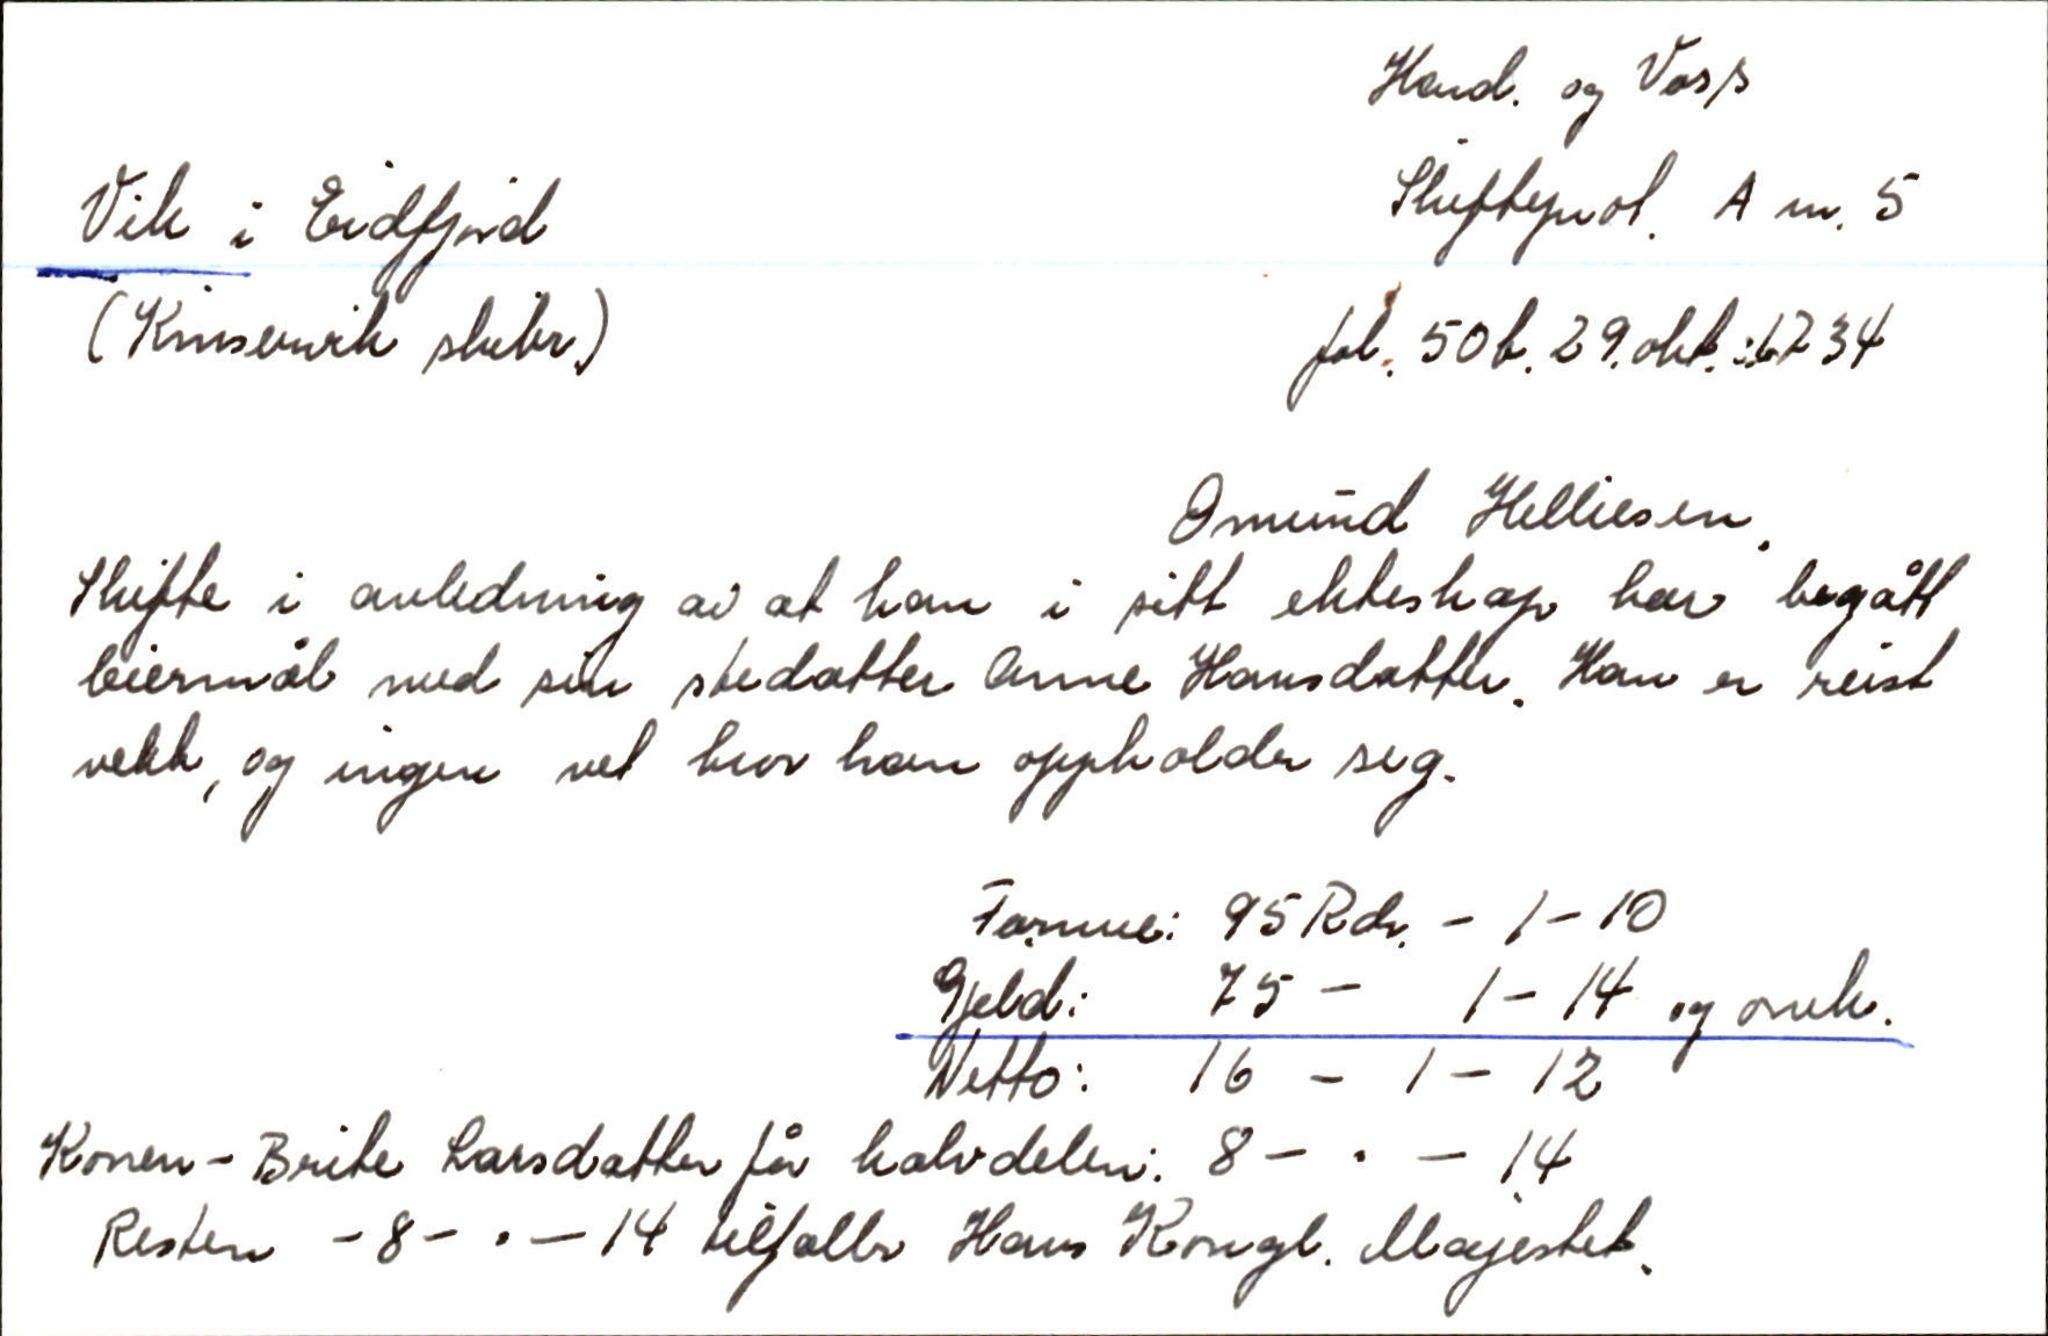 Hard. og Voss
Skifteprot. A nr. 5
Vik i Eidfjord
(Kinservik skibr.)
fol. 50b. 29. okt. 1734
Omund Helliesen.
Skifte i anledning av at han i sitt ekteskap har begått
leiermål med sin stedatter Anne Hansdatter. Han er reist
vekk, og ingen vet hvor han oppholder seg.
Formue: 95 Rdr. - 1 - 10
Gjeld: 75 - 1 - 14 og omk.
Netto: 16 - 1 - 12
Konen - Brite Larsdatter får halvdelen: 8 - . - 14
Resten - 8 - . - 14 tilfaller Hans Kongl. Majestet.